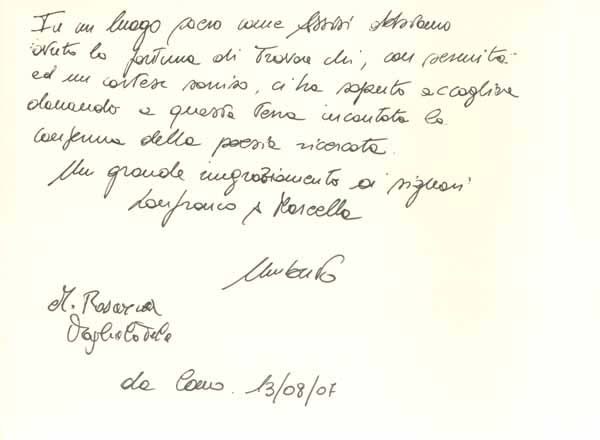 In un luogo sacro come Assisi abbiamo
avuto la fortuna di trovare chi, con serenità
ed un cortese sorriso, ci ha saputo accogliere
donando a questa terra incantata la
conferma della poesia ricercata.
Un grande ringraziamento ai signori
Lanfranco e Marcella
Umberto
M. Rosaria
da Como 13/08/07